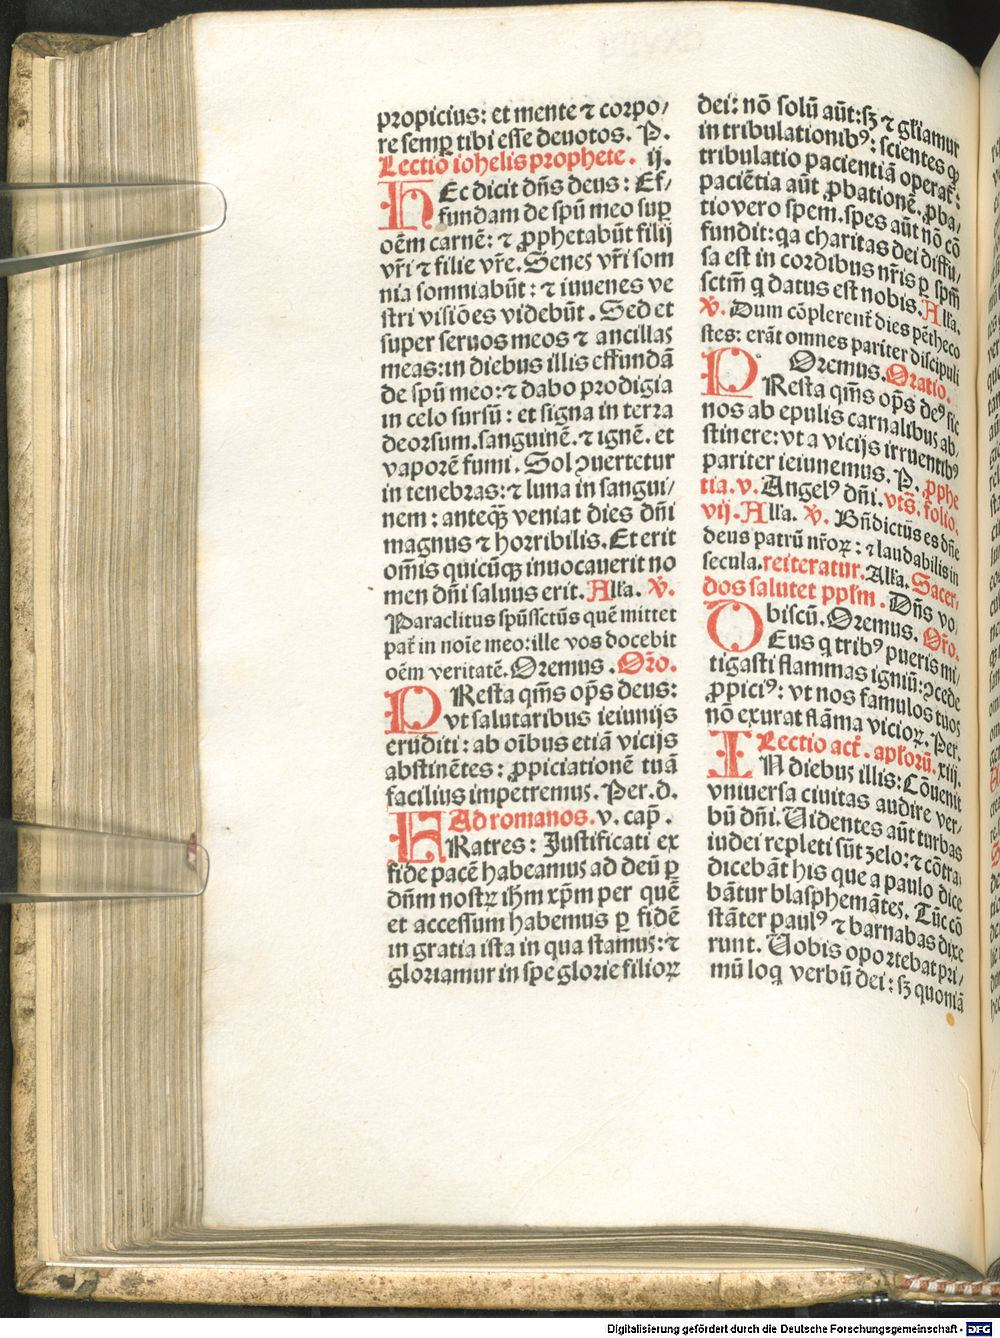 propicius: et mente ⁊ corpo/
re semꝑ tibi esse deuotos. P.
Lectio iohelis prophete. ij.
HEc dicit dn̄s deus: Ef/
fundam de spū meo suꝑ
oēm carnē: ⁊ ꝓphetabūt filij
vr̄i ⁊ filie vr̄e. Senes vr̄i som
nia somniabūt: ⁊ iuuenes ve
stri visiōes videbūt. Sed et
super seruos meos ⁊ ancillas
meas: in diebus illis effundā
de spū meo: ⁊ dabo prodigia
in celo sursū: et signa in terra
deorsum. sanguinē. ⁊ ignē. et
vaporē fumi. Sol ꝯuertetur
in tenebras: ⁊ luna in sangui/
nem: anteqꝫ̄ veniat dies dn̄i
magnus ⁊ horribilis. Et erit
om̄is quicūqꝫ inuocauerit no
men dn̄i saluus erit. All'a. ℣.
Paraclitus spūssctūs quē mittet
pat̄ in noīe meo: ille vos docebit
oēm veritatē. Oremus. Or̄o.
PResta qm̄s op̄s deus:
vt salutaribus ieiunijs
eruditi: ab oībus etiā vicijs
abstinētes: ꝓpiciationē tuā
facilius impetremus. Per. d.
Ad romanos. v. cap̄.
FRatres: Justificati ex
fide pacē habeamus ad deū ꝑ
dn̄m nostꝝ ih̄m xp̄m per quē
et accessum habemus ꝑ fidē
in gratia ista in qua stamus: ⁊
gloriamur in spe glorie filioꝝ
dei: nō solū aūt: sꝫ ⁊ gl'iamur
in tribulationibꝰ: scientes ꝙ
tribulatio pacientiā operat̄:
paciētia aūt ꝓbationē. ꝓba/
tio vero spem. spes aūt nō cō
fundit: qa charitas dei diffu/
sa est in cordibus nr̄is ꝑ spm̄
sctm̄ q datus est nobis. All'a.
℣. Dum cōplerent̄ dies pētheco
stes: erāt omnes pariter discipuli
Oremus. Oratio.
PResta qm̄s op̄s deꝰ sic
nos ab epulis carnalibus ab
stinere: vt a vicijs irruentibꝰ
pariter ieiunemus. P. ꝓphe
tia. v. Angelꝰ dn̄i. vts̄. folio.
vij. All'a. ℣. Bn̄dictus es dn̄e
deus patrū nr̄oꝝ: ⁊ laudabilis in
secula. reiteratur. All'a. Sacer/
dos salutet pp̄lm. Dn̄s vo/
biscū. Oremus. Or̄o.
DEus q tribꝰ pueris mi/
tigasti flammas igniū: ꝯcede
ꝓpiciꝰ: vt nos famulos tuos
nō exurat flāma vicioꝝ. Per.
Lectio act̄. apl'orū. xiij.
IN diebus illis: Cōuenit
vniuersa ciuitas audire ver/
bū dn̄i. Uidentes aūt turbas
iudei repleti sūt zelo: ⁊ cōtra/
dicebāt his que a paulo dice
bātur blasphemātes. Tūc cō
stāter paulꝰ ⁊ barnabas dixe
runt. Uobis oportebat pri/
mū loq verbū dei: sꝫ quoniā
Digitalisierung gefördert durch die Deutsche Forschungsgemeinschaft - DFG